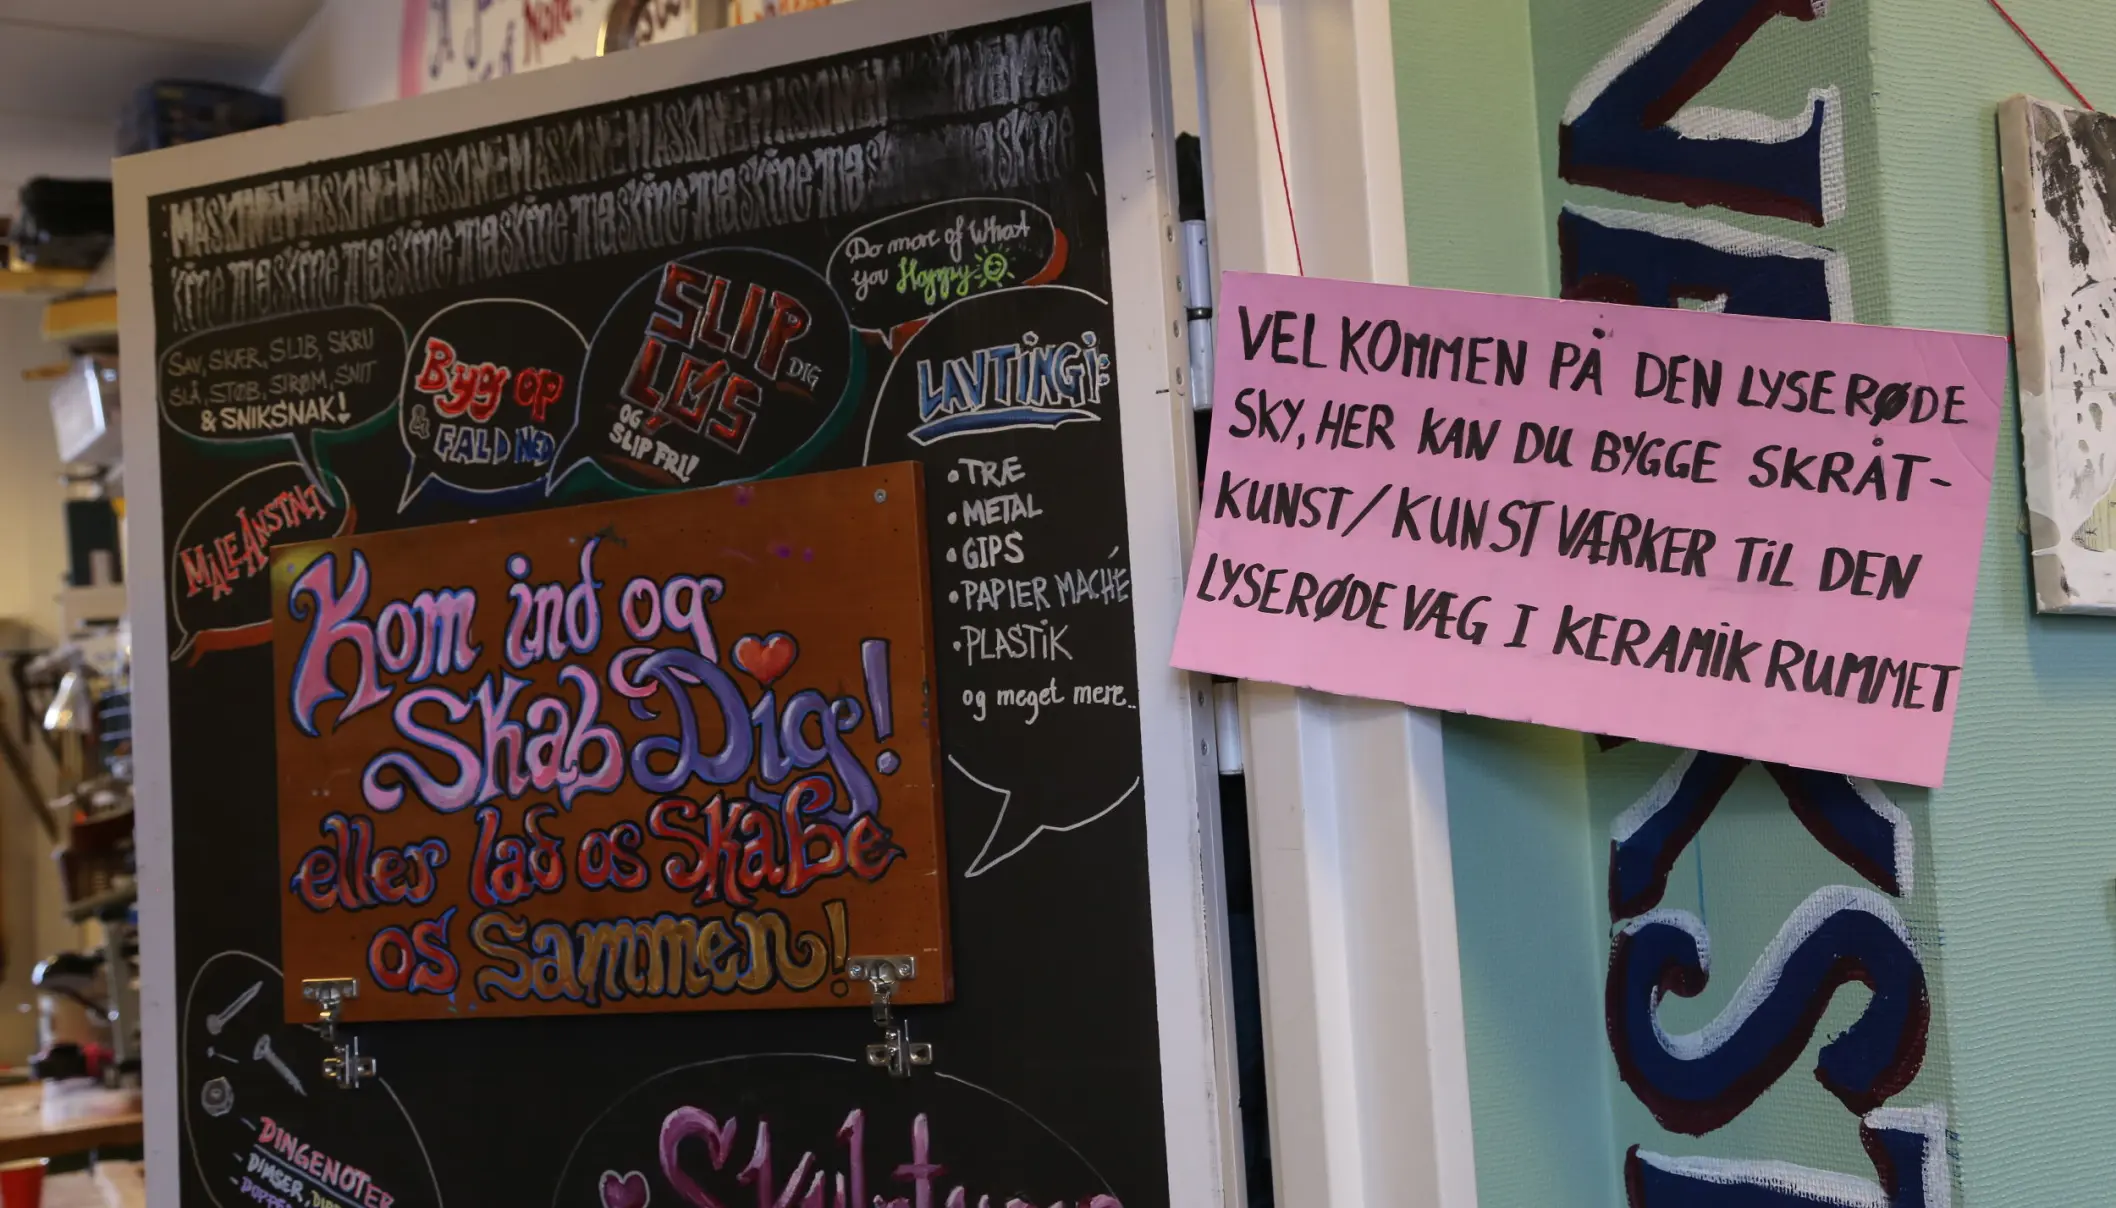 MASKINE MASKINE MASKINE MASKINE MASKINE
maskine maskine maskine maskine
SAV, SKÆR, SLIB, SKRU
SLÅ, STØB, STRØM, SNIT
& SNIKSNAK!
Byg op
& FALD NED
SLIP
DIG
LØS
OG
SLIP FRI!
Do more of What
you Happy
LAV TING i:
• TRÆ
• METAL
• GIPS
• PAPIER MACHÉ
• PLASTiK
og meget mere..
MALEANSTALT
Kom ind og
Skab Dig!
eller lad os Skabe
os Sammen!
- DINGENOTER
- DIMSER,
VELKOMMEN PÅ DEN LYSERØDE
SKY, HER KAN DU BYGGE SKRÅT-
KUNST/KUNSTVÆRKER TiL DEN
LYSERØDE VÆG I KERAMiKRUMMET